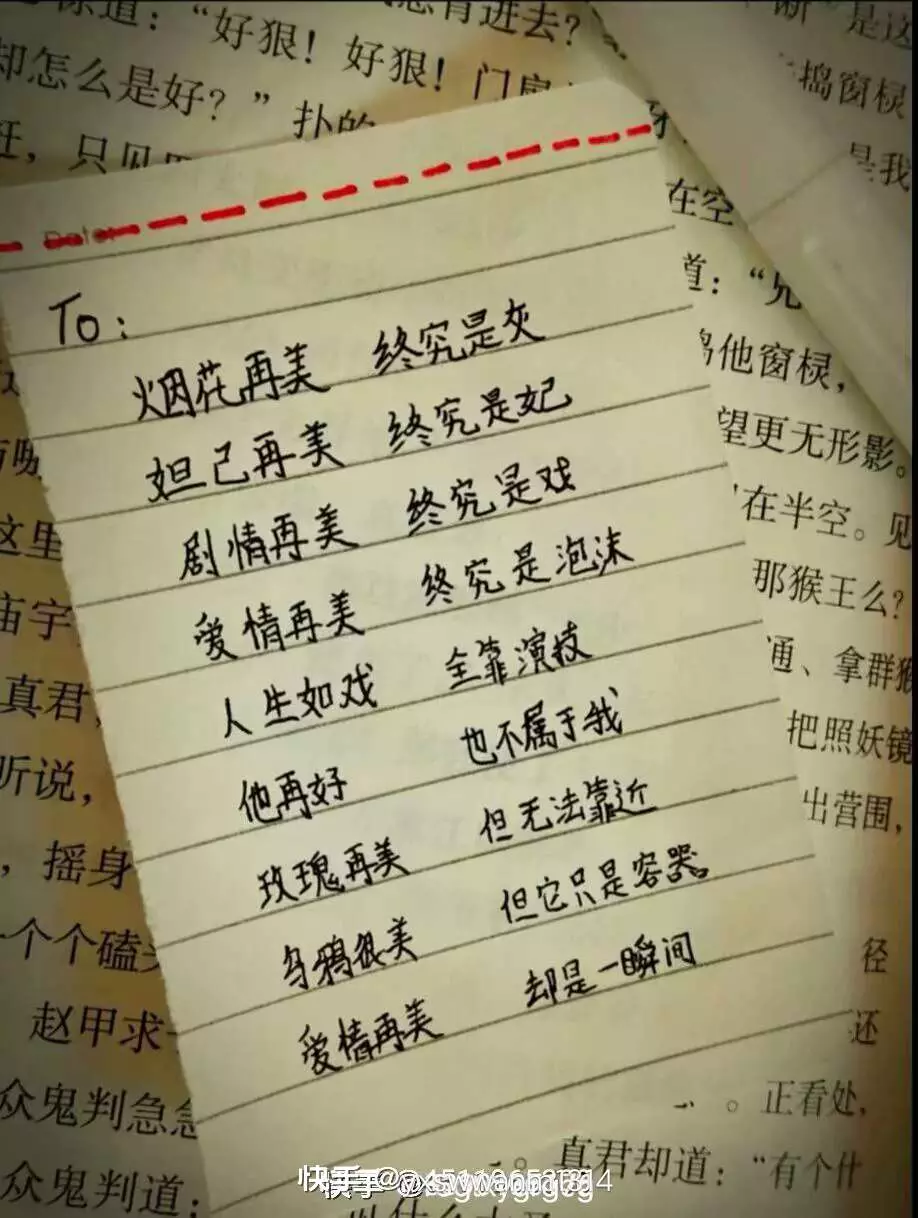 To:
烟花再美 终究是灰
妲己再美 终究是妃
剧情再美 终究是戏
爱情再美 终究是泡沫
人生如戏 全靠演技
他再好 也不属于我
玫瑰再美 但无法靠近
乌鸦很美 但它只是容器。
爱情再美 却是一瞬间
道：“好狠！好狠！门房
却怎么是好？”扑的
只见
捣窗棂
是我
在空
道：“
他窗棂，
望更无形影。
在半空。见
那猴王么？
通、拿群猴
把照妖镜
出营围，
这里
庙宇
真君，
听说，
，摇身
一个个磕头
赵甲求
众鬼判急急
众鬼判道：
径
还
。正看处，
。真君却道：“有个什
快手